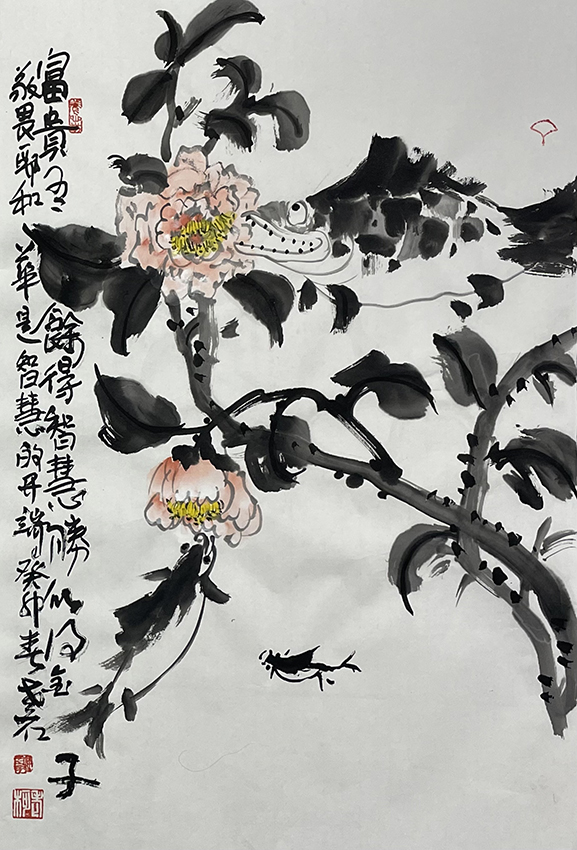 富貴有餘得智慧勝似得金子
敬畏耶和華是智慧的开端癸卯春